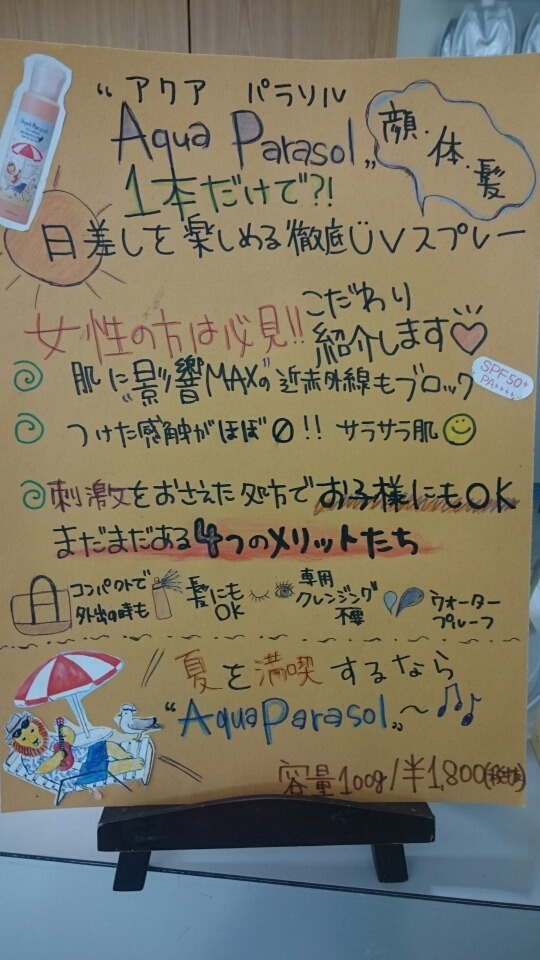 Aqua Parasol
“アクア パラソル
Aqua Parasol„
顔・体・髪
1本だけで?!
日差しを楽しめる徹底UVスプレー
女性の方は必見!!
こだわり
紹介します♡
肌に影響MAXの近赤外線もブロック
SPF50+
PA++++
つけた感触がほぼ0!! サラサラ肌
刺激をおさえた処方でお子様にもOK
まだまだある4つのメリットたち
コンパクトで
外出の時も
髪にも
OK
専用
クレンジング
不要
ウォーター
プルーフ
夏を満喫するなら
“AquaParasol„〜
容量100g/¥1,800(税抜)